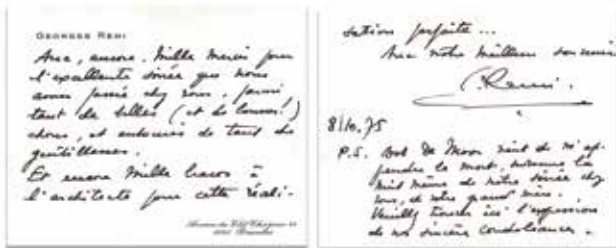 GEORGES REMI
Avec, encore, mille mercis pour
l'excellente soirée que nous
avons passée chez vous, parmi
tant de belles (et de bonnes!)
choses, et entourés de tant de
gentillesse.
Et encore mille bravos à
l'architecte pour cette réali-
Avenue du
Bruxelles
sation parfaite...
Avec notre meilleur souvenir
Remi.
8/10.75
P.S. Bob De Moor vient de m'ap-
prendre la mort, survenue la
nuit même de notre soirée chez
vous, de votre grand'mère.
Veuillez trouver ici l'expression
de nos sincères condoléances.